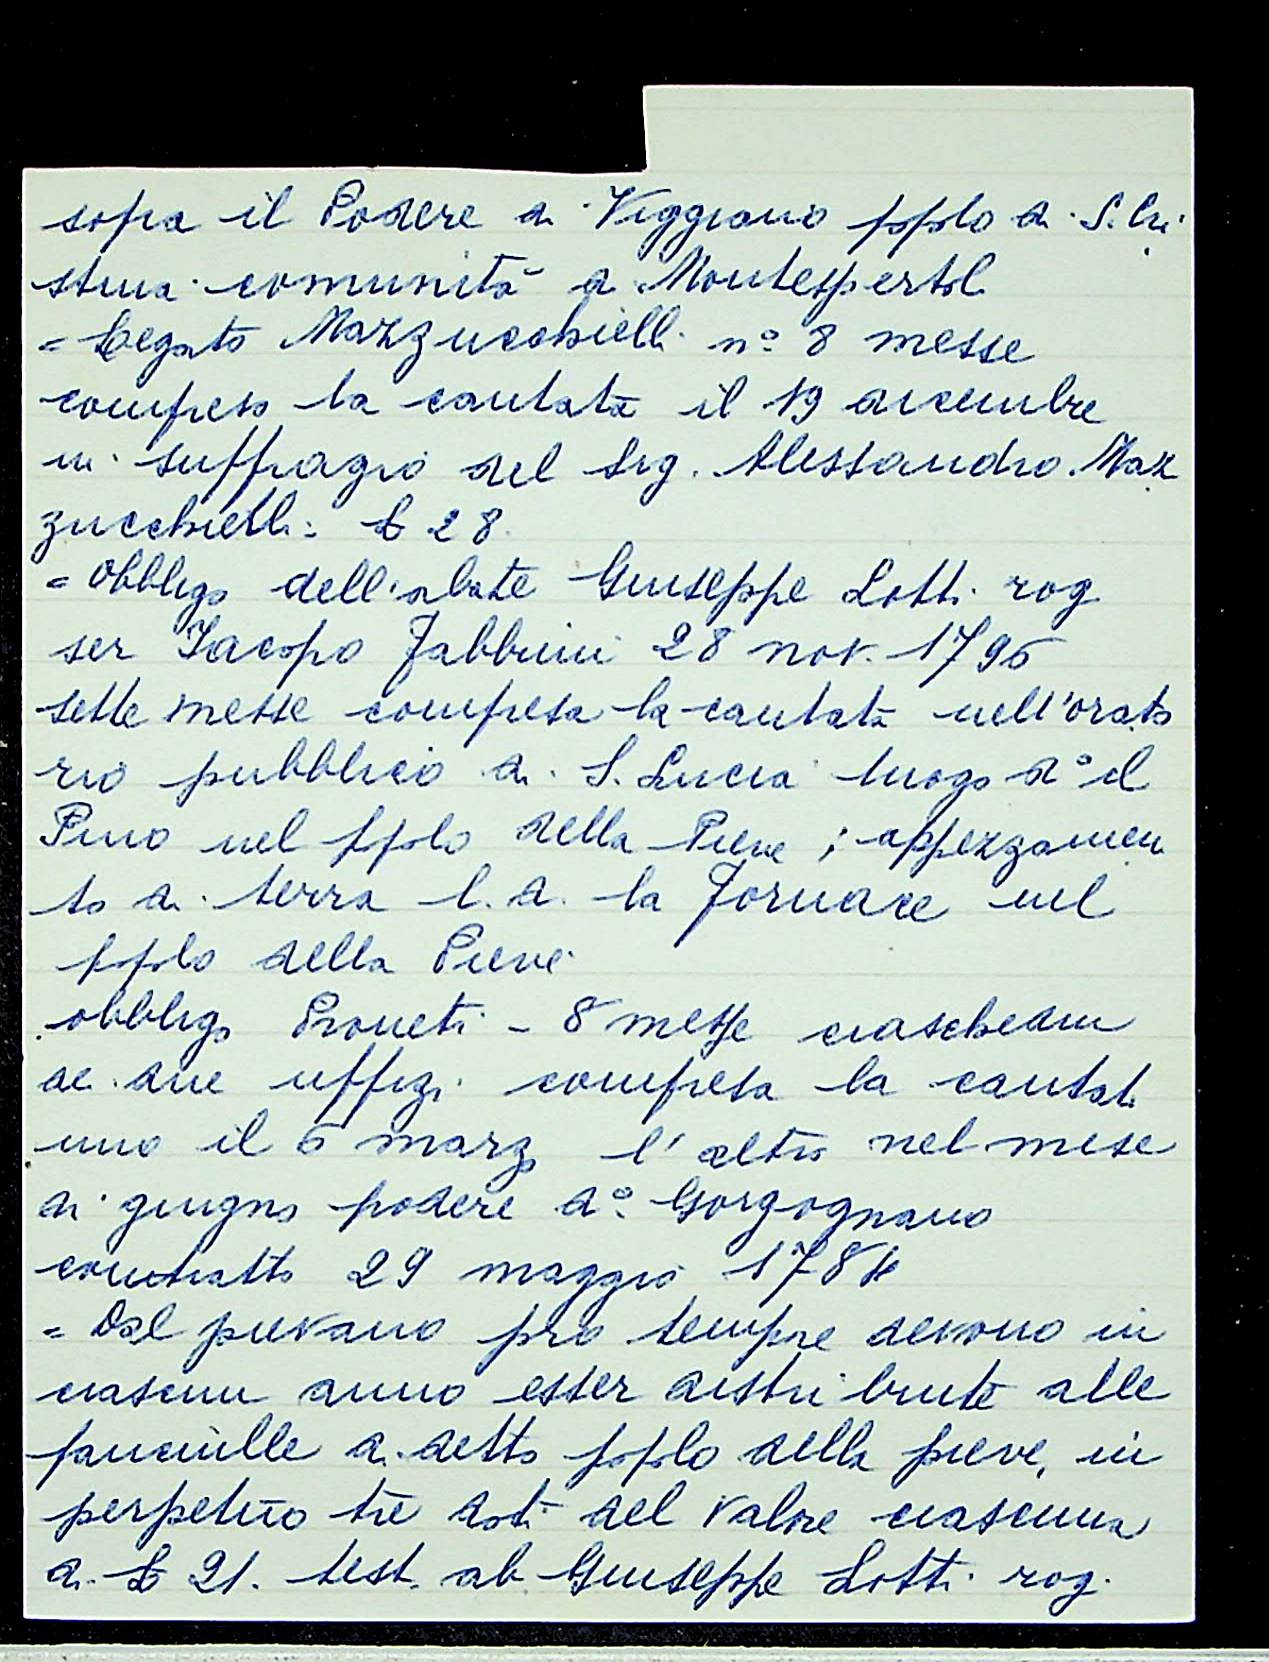 sopra il Podere di Viggiano pplo di S. Cri
stina comunità di Montespertoli
= Legato Mazzucchielli n° 8 messe
compreso la cantata il 19 dicembre
in suffragio del Sig. Alessandro Maz
zucchielli: £ 28
= Obbligo dell'abate Giuseppe Lotti rog
ser Iacopo Fabbrini 28 nov. 1796
sette messe compresa la cantata nell'orato
rio pubblico di S. Lucia luogo d° il
Pino nel pplo della Pieve; appezzamen
to di terra l. d. la Fornace nel
pplo della Pieve
obbligo Pioneti - 8 messe ciaschedun
dei due uffizi compresa la cantat.
uno il 6 marzo l'altro nel mese
di giugno podere d° Gorgognano
contratto 29 maggio 1784
= Dal pievano pro tempore devono in
ciascun anno esser distribuite alle
fanciulle di detto pplo della pieve, in
perpetuo tre doti del valore ciascuna
di £ 21. test. ab Giuseppe Lotti rog.